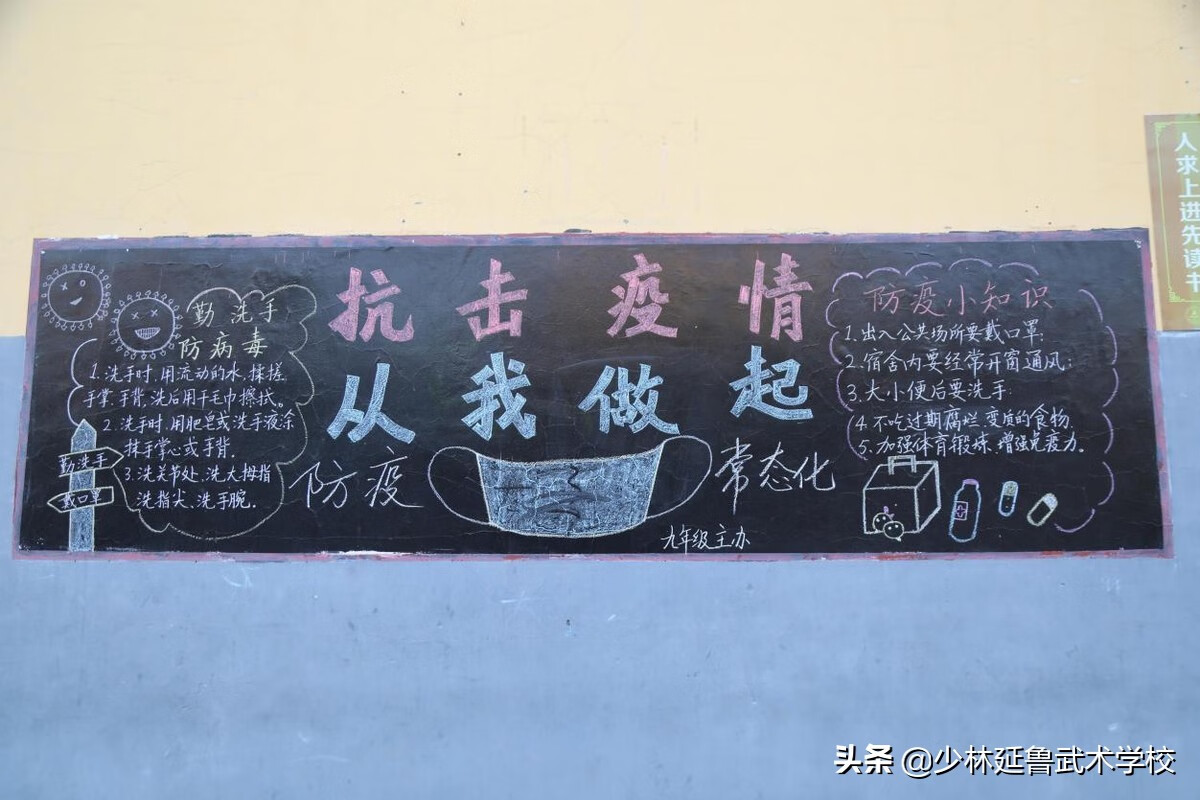 抗击疫情
从我做起
防疫
常态化
九年级主办
勤洗手
防病毒
1.洗手时,用流动的水,揉搓
手掌,手背,洗后用干毛巾擦拭。
2.洗手时.用肥皂或洗手液涂
抹手掌心或手背.
3.洗关节处、洗大拇指
洗指尖、洗手腕.
勤洗手
戴口罩
防疫小知识
1.出入公共场所要戴口罩;
2.宿舍内要经常开窗通风;
3.大小便后要洗手;
4.不吃过期腐烂变质的食物.
5.加强体育锻炼.增强免疫力。
人求上进先读书
头条 @少林延鲁武术学校